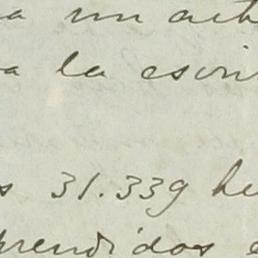 a un act
a la escri
s 31.339 he
prendidos e